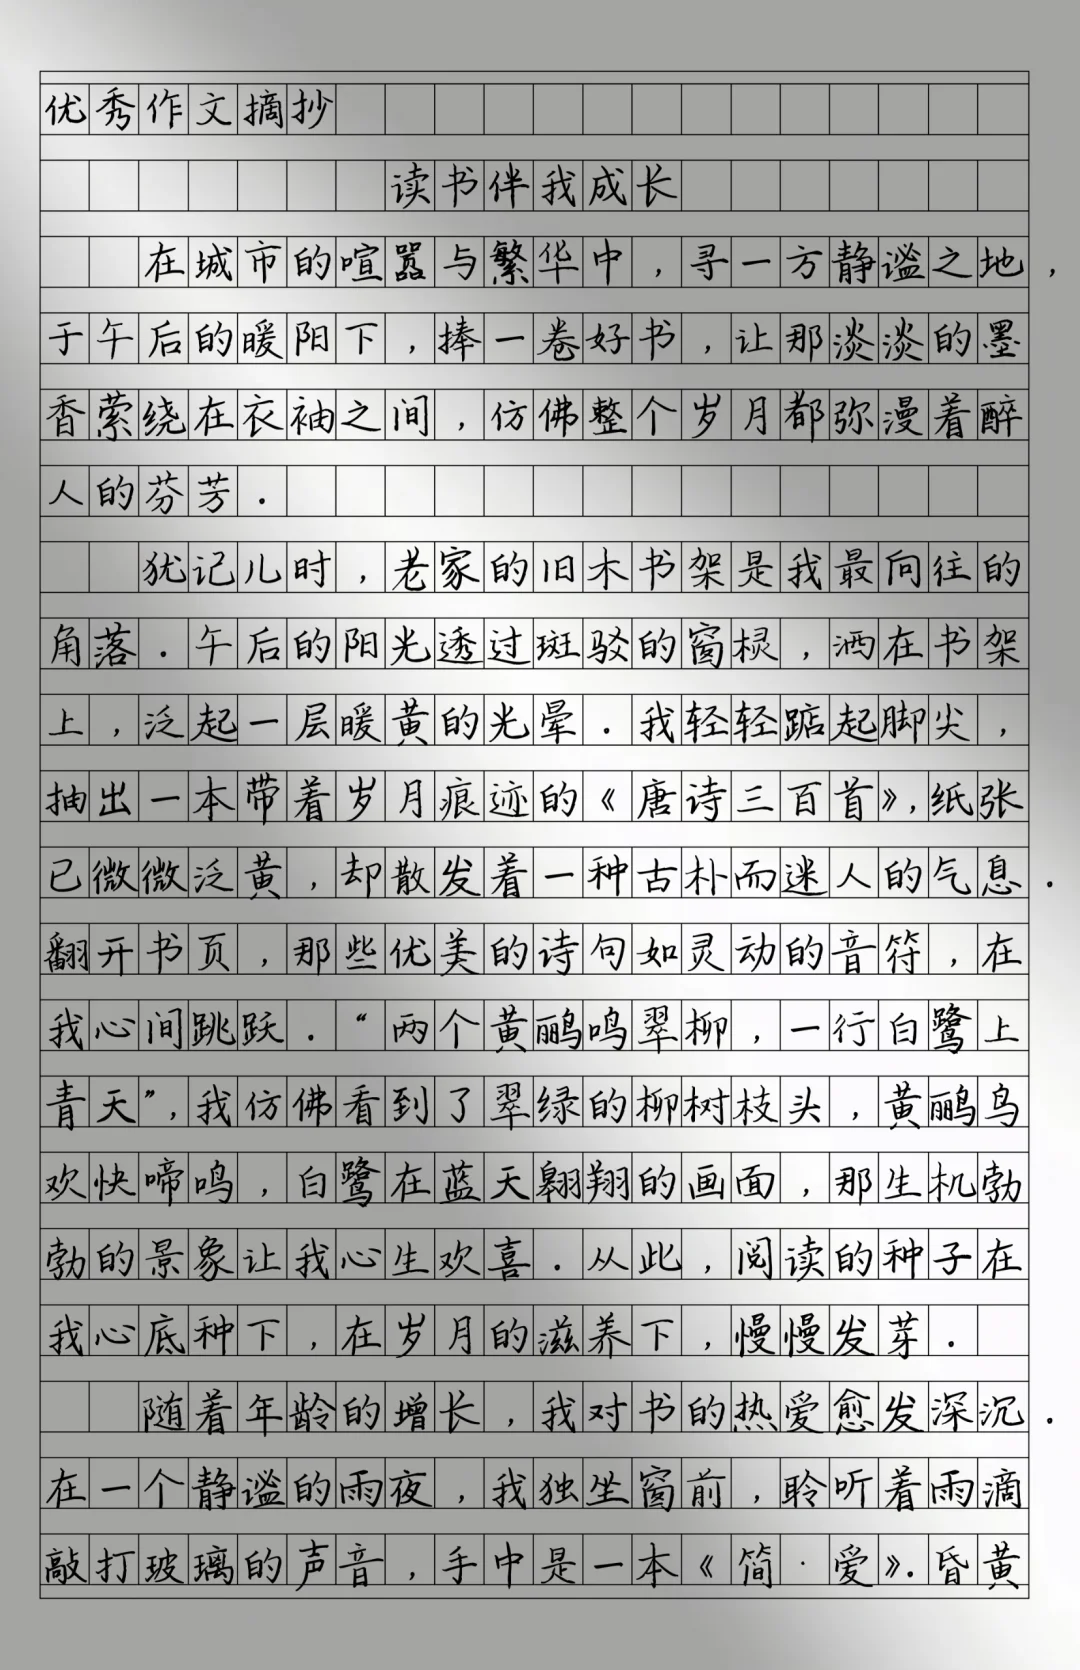 优秀作文摘抄
读书伴我成长
在城市的喧嚣与繁华中，寻一方静谧之地，
于午后的暖阳下，捧一卷好书，让那淡淡的墨
香萦绕在衣袖之间，仿佛整个岁月都弥漫着醉
人的芬芳.
犹记儿时，老家的旧木书架是我最向往的
角落.午后的阳光透过斑驳的窗棂，洒在书架
上，泛起一层暖黄的光晕.我轻轻踮起脚尖，
抽出一本带着岁月痕迹的《唐诗三百首》，纸张
已微微泛黄，却散发着一种古朴而迷人的气息.
翻开书页，那些优美的诗句如灵动的音符，在
我心间跳跃.“两个黄鹂鸣翠柳，一行白鹭上
青天”，我仿佛看到了翠绿的柳树枝头，黄鹂鸟
欢快啼鸣，白鹭在蓝天翱翔的画面，那生机勃
勃的景象让我心生欢喜.从此，阅读的种子在
我心底种下，在岁月的滋养下，慢慢发芽.
随着年龄的增长，我对书的热爱愈发深沉.
在一个静谧的雨夜，我独坐窗前，聆听着雨滴
敲打玻璃的声音，手中是一本《简·爱》.昏黄